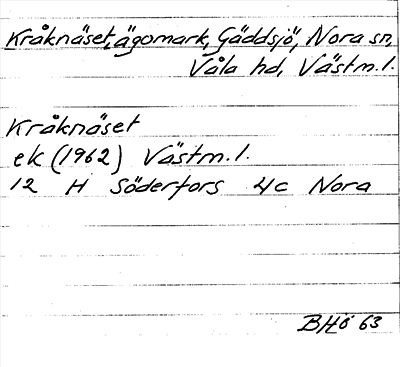 Kråknäset, ägomark, Gäddsjö, Nora sn,
Våla hd, Västm. l.
Kråknäset
ek (1962) Västm. l.
12 H Söderfors 4c Nora
BHö 63